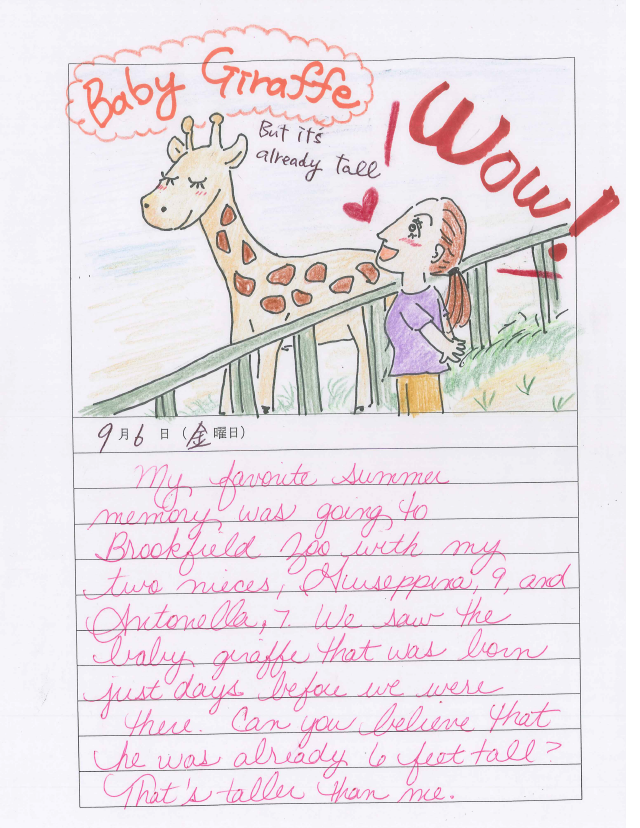 Baby Giraffe
But it's
already tall
Wow!
9月6日(金曜日)
My favorite summer
memory was going to
Brookfield Zoo with my
two nieces, Giuseppina, 9, and
Antonella, 7. We saw the
baby giraffe that was born
just days before we were
there. Can you believe that
he was already 6 feet tall?
That's taller than me.